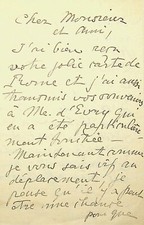 Cher Monsieur
et ami,
J'ai bien reçu
votre jolie carte de
Rome et j'ai aussi
transmis vos souvenirs
à Me. d'Evry qui
en a été particulière
ment touchée.
Maintenant comme
je vous sais vif au
déplacement, je
pense qu'il y a peut
être une chance
pour que